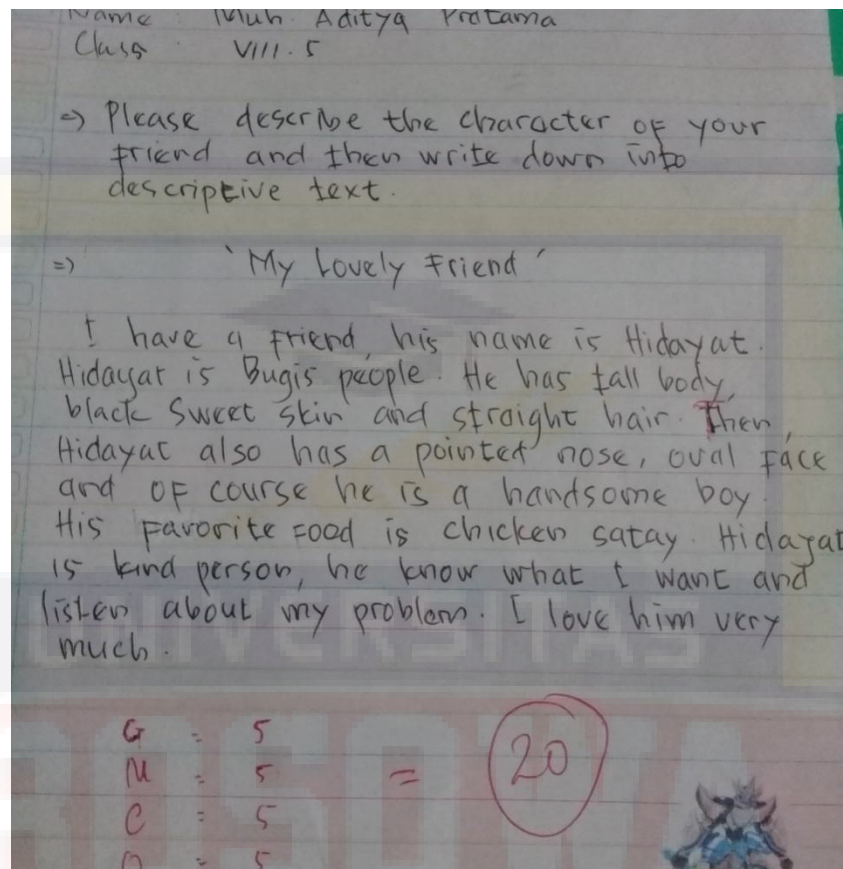 Name : Muh. Aditya Pratama
Class : VIII.5
=> Please describe the character of your
friend and then write down into
descriptive text.
=> 'My Lovely Friend'
I have a friend, his name is Hidayat.
Hidayat is Bugis people. He has tall body,
black sweet skin and straight hair. Then,
Hidayat also has a pointed nose, oval face
and of course he is a handsome boy.
His favorite food is chicken satay. Hidayat
is kind person, he know what I want and
listen about my problem. I love him very
much.
UNIVERSITAS
BOSOWA
G = 5
M = 5 = 20
C = 5
O = 5